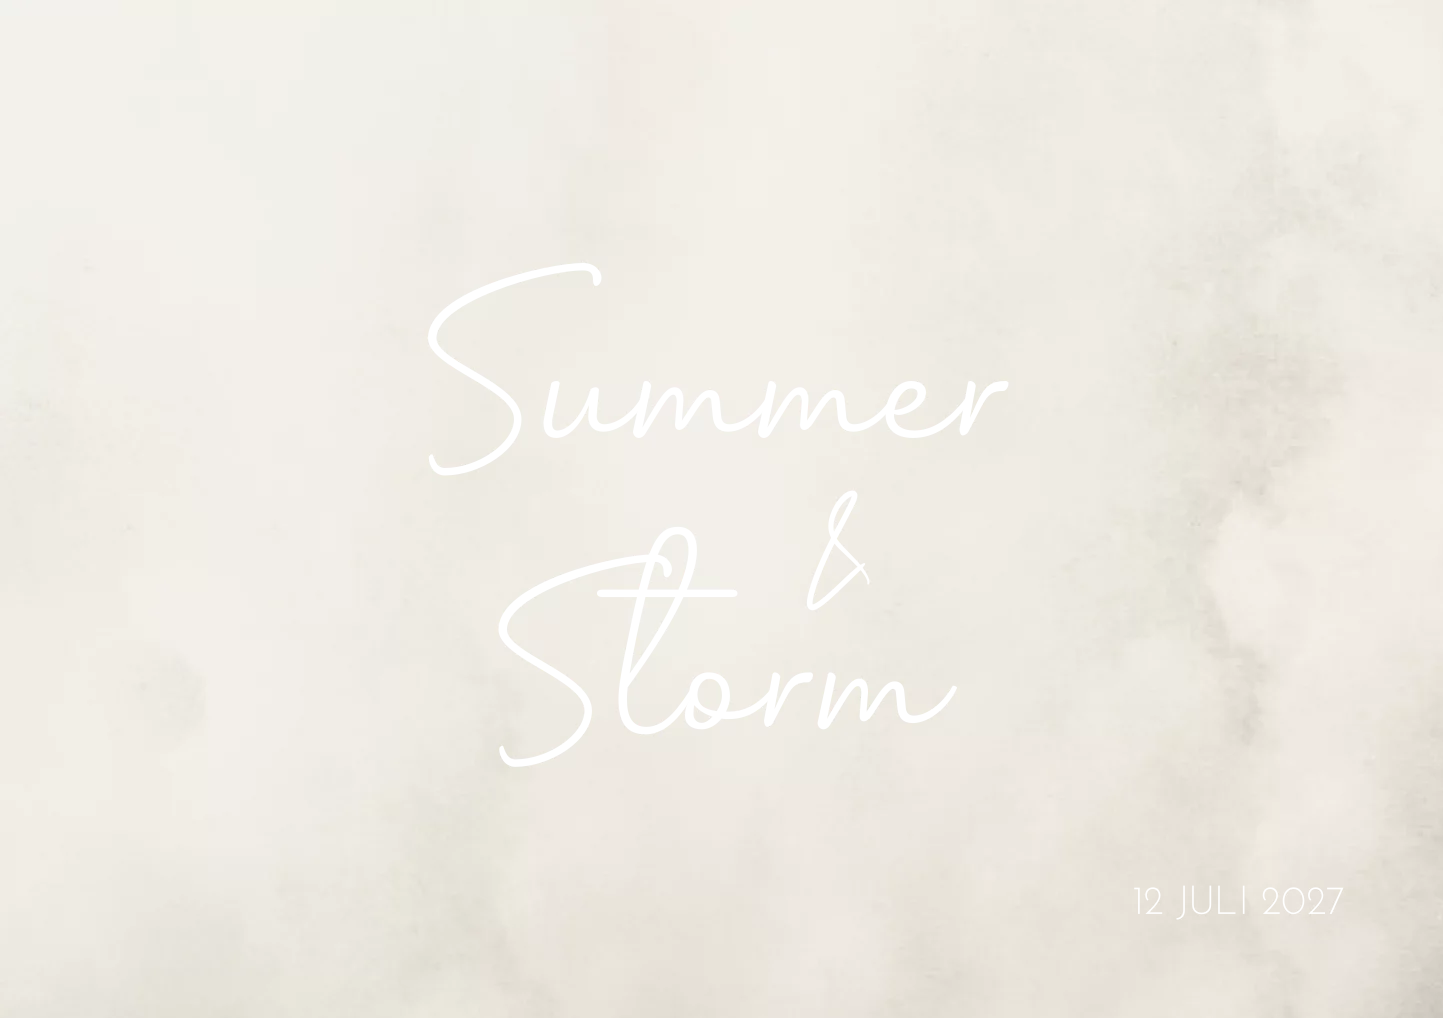 Summer
&
Storm
12 JULI 2027